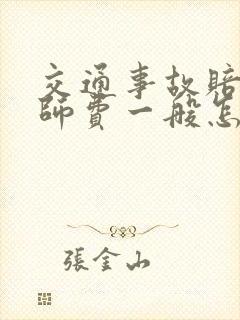 交通事故賠
師費一般怎
張金山